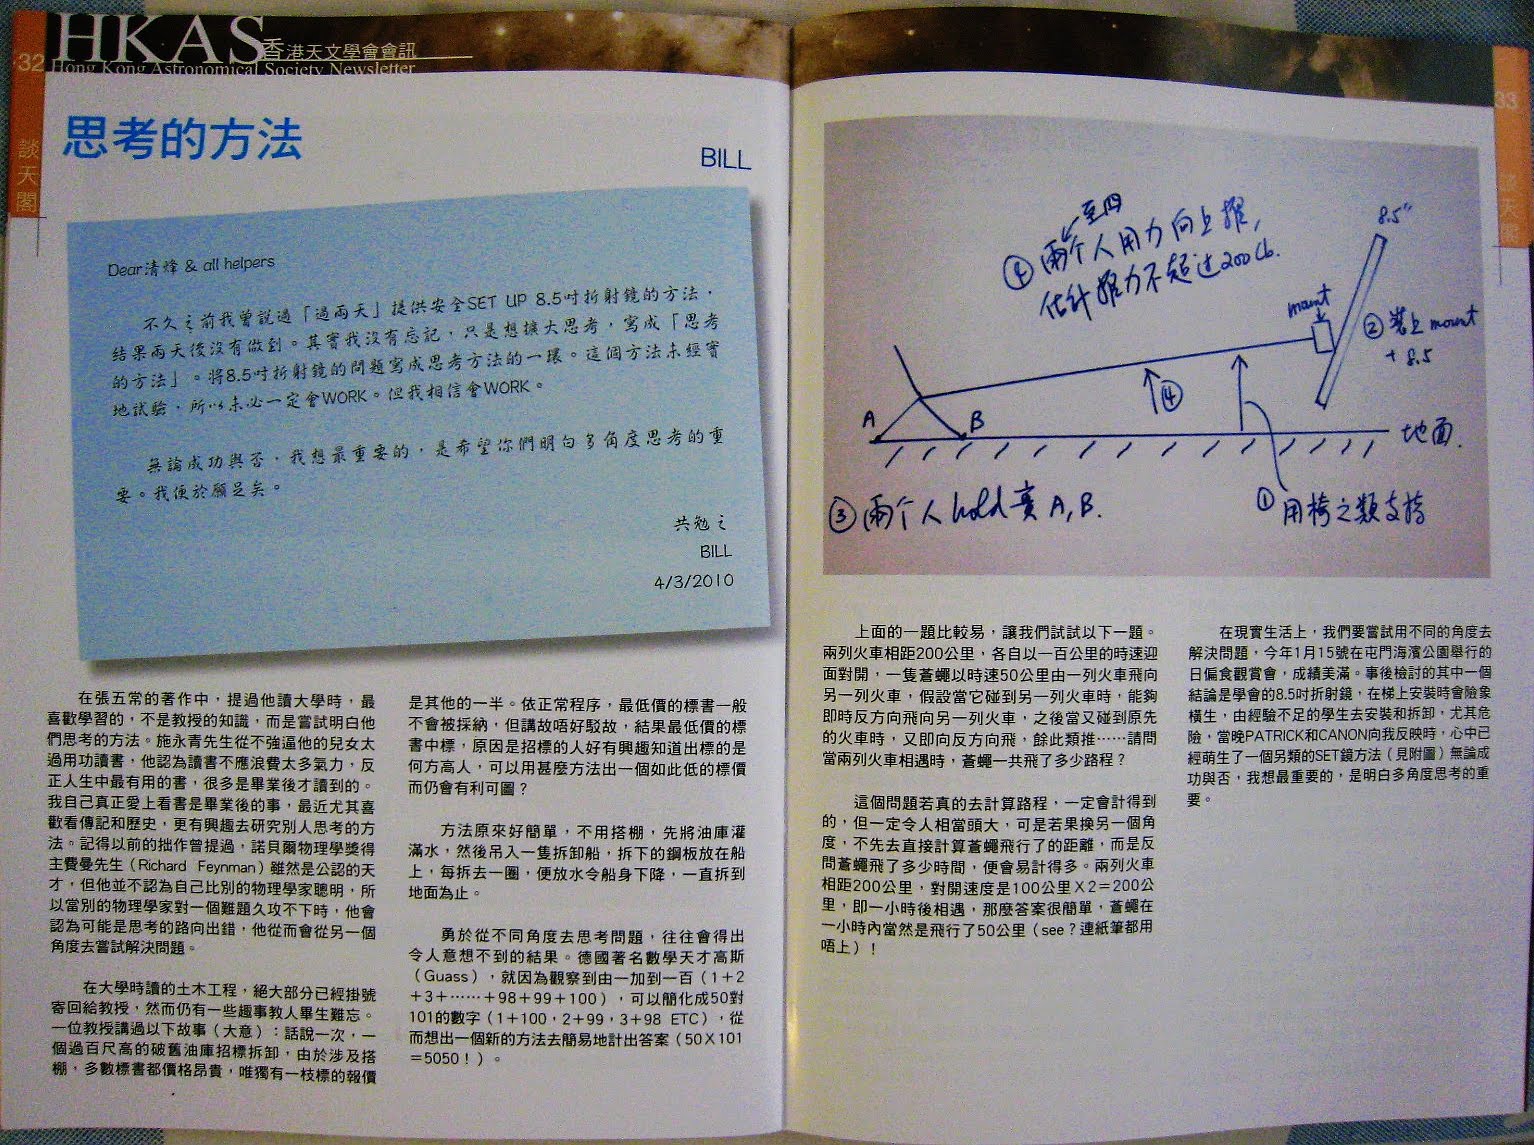 32
HKAS
香港天文學會會訊
Hong Kong Astronomical Society Newsletter
談天閣
思考的方法
BILL
Dear清烽 & all helpers
不久之前我曾說過「過兩天」提供安全SET UP 8.5吋折射鏡的方法，
結果兩天後沒有做到。其實我沒有忘記，只是想擴大思考，寫成「思考
的方法」。將8.5吋折射鏡的問題寫成思考方法的一環。這個方法未經實
地試驗，所以未必一定會WORK。但我相信會WORK。
無論成功與否，我想最重要的，是希望你們明白多角度思考的重
要。我便於願足矣。
共勉之
BILL
4/3/2010
在張五常的著作中，提過他讀大學時，最
喜歡學習的，不是教授的知識，而是嘗試明白他
們思考的方法。施永青先生從不強逼他的兒女太
過用功讀書，他認為讀書不應浪費太多氣力，反
正人生中最有用的書，很多是畢業後才讀到的。
我自己真正愛上看書是畢業後的事，最近尤其喜
歡看傳記和歷史，更有興趣去研究別人思考的方
法。記得以前的拙作曾提過，諾貝爾物理學獎得
主費曼先生（Richard Feynman）雖然是公認的天
才，但他並不認為自己比別的物理學家聰明，所
以當別的物理學家對一個難題久攻不下時，他會
認為可能是思考的路向出錯，他從而會從另一個
角度去嘗試解決問題。
在大學時讀的土木工程，絕大部分已經掛號
寄回給教授，然而仍有一些趣事教人畢生難忘。
一位教授講過以下故事（大意）：話說一次，一
個過百尺高的破舊油庫招標拆卸，由於涉及搭
棚，多數標書都價格昂貴，唯獨有一枝標的報價
是其他的一半。依正常程序，最低價的標書一般
不會被採納，但講故唔好駁故，結果最低價的標
書中標，原因是招標的人好有興趣知道出標的是
何方高人，可以用甚麼方法出一個如此低的標價
而仍會有利可圖？
方法原來好簡單，不用搭棚，先將油庫灌
滿水，然後吊入一隻拆卸船，拆下的鋼板放在船
上，每拆去一圈，便放水令船身下降，一直拆到
地面為止。
勇於從不同角度去思考問題，往往會得出
令人意想不到的結果。德國著名數學天才高斯
（Guass），就因為觀察到由一加到一百（1＋2
＋3＋……＋98＋99＋100），可以簡化成50對
101的數字（1＋100，2＋99，3＋98 ETC），從
而想出一個新的方法去簡易地計出答案（50X101
＝5050！）。
33
談天閣
至四
④ 兩个人用力向上推，
估計推力不超过200 lb.
8.5"
mount
② 裝上 mount
+ 8.5
A
B
④
地面.
③ 兩个人 hold 實 A, B.
① 用椅之類支持
上面的一題比較易，讓我們試試以下一題。
兩列火車相距200公里，各自以一百公里的時速迎
面對開，一隻蒼蠅以時速50公里由一列火車飛向
另一列火車，假設當它碰到另一列火車時，能夠
即時反方向飛向另一列火車，之後當又碰到原先
的火車時，又即向反方向飛，餘此類推……請問
當兩列火車相遇時，蒼蠅一共飛了多少路程？
這個問題若真的去計算路程，一定會計得到
的，但一定令人相當頭大，可是若果換另一個角
度，不先去直接計算蒼蠅飛行了的距離，而是反
問蒼蠅飛了多少時間，便會易計得多。兩列火車
相距200公里，對開速度是100公里X2＝200公
里，即一小時後相遇，那麼答案很簡單，蒼蠅在
一小時內當然是飛行了50公里（see？連紙筆都用
唔上）！
在現實生活上，我們要嘗試用不同的角度去
解決問題，今年1月15號在屯門海濱公園舉行的
日偏食觀賞會，成績美滿。事後檢討的其中一個
結論是學會的8.5吋折射鏡，在梯上安裝時會險象
橫生，由經驗不足的學生去安裝和拆卸，尤其危
險，當晚PATRICK和CANON向我反映時，心中已
經萌生了一個另類的SET鏡方法（見附圖）無論成
功與否，我想最重要的，是明白多角度思考的重
要。